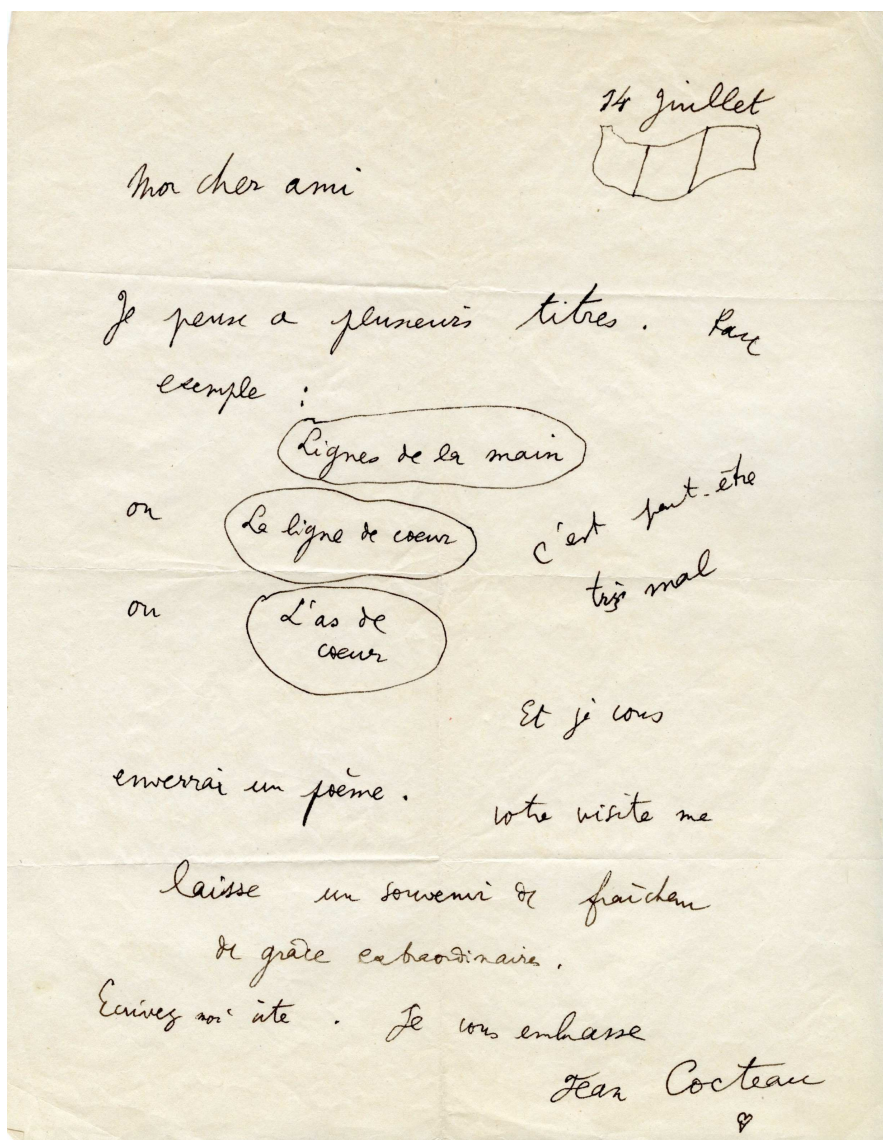 14 Juillet
Mon cher ami
Je pense a plusieurs titres. Par
exemple :
Lignes de la main
ou
La ligne de coeur
c'est peut-être
très mal
ou
L'as de
coeur
Et je vous
enverrai un poème.
votre visite me
laisse un souvenir de fraîcheur
de grâce extraordinaires.
Ecrivez moi vite. Je vous embrasse
Jean Cocteau